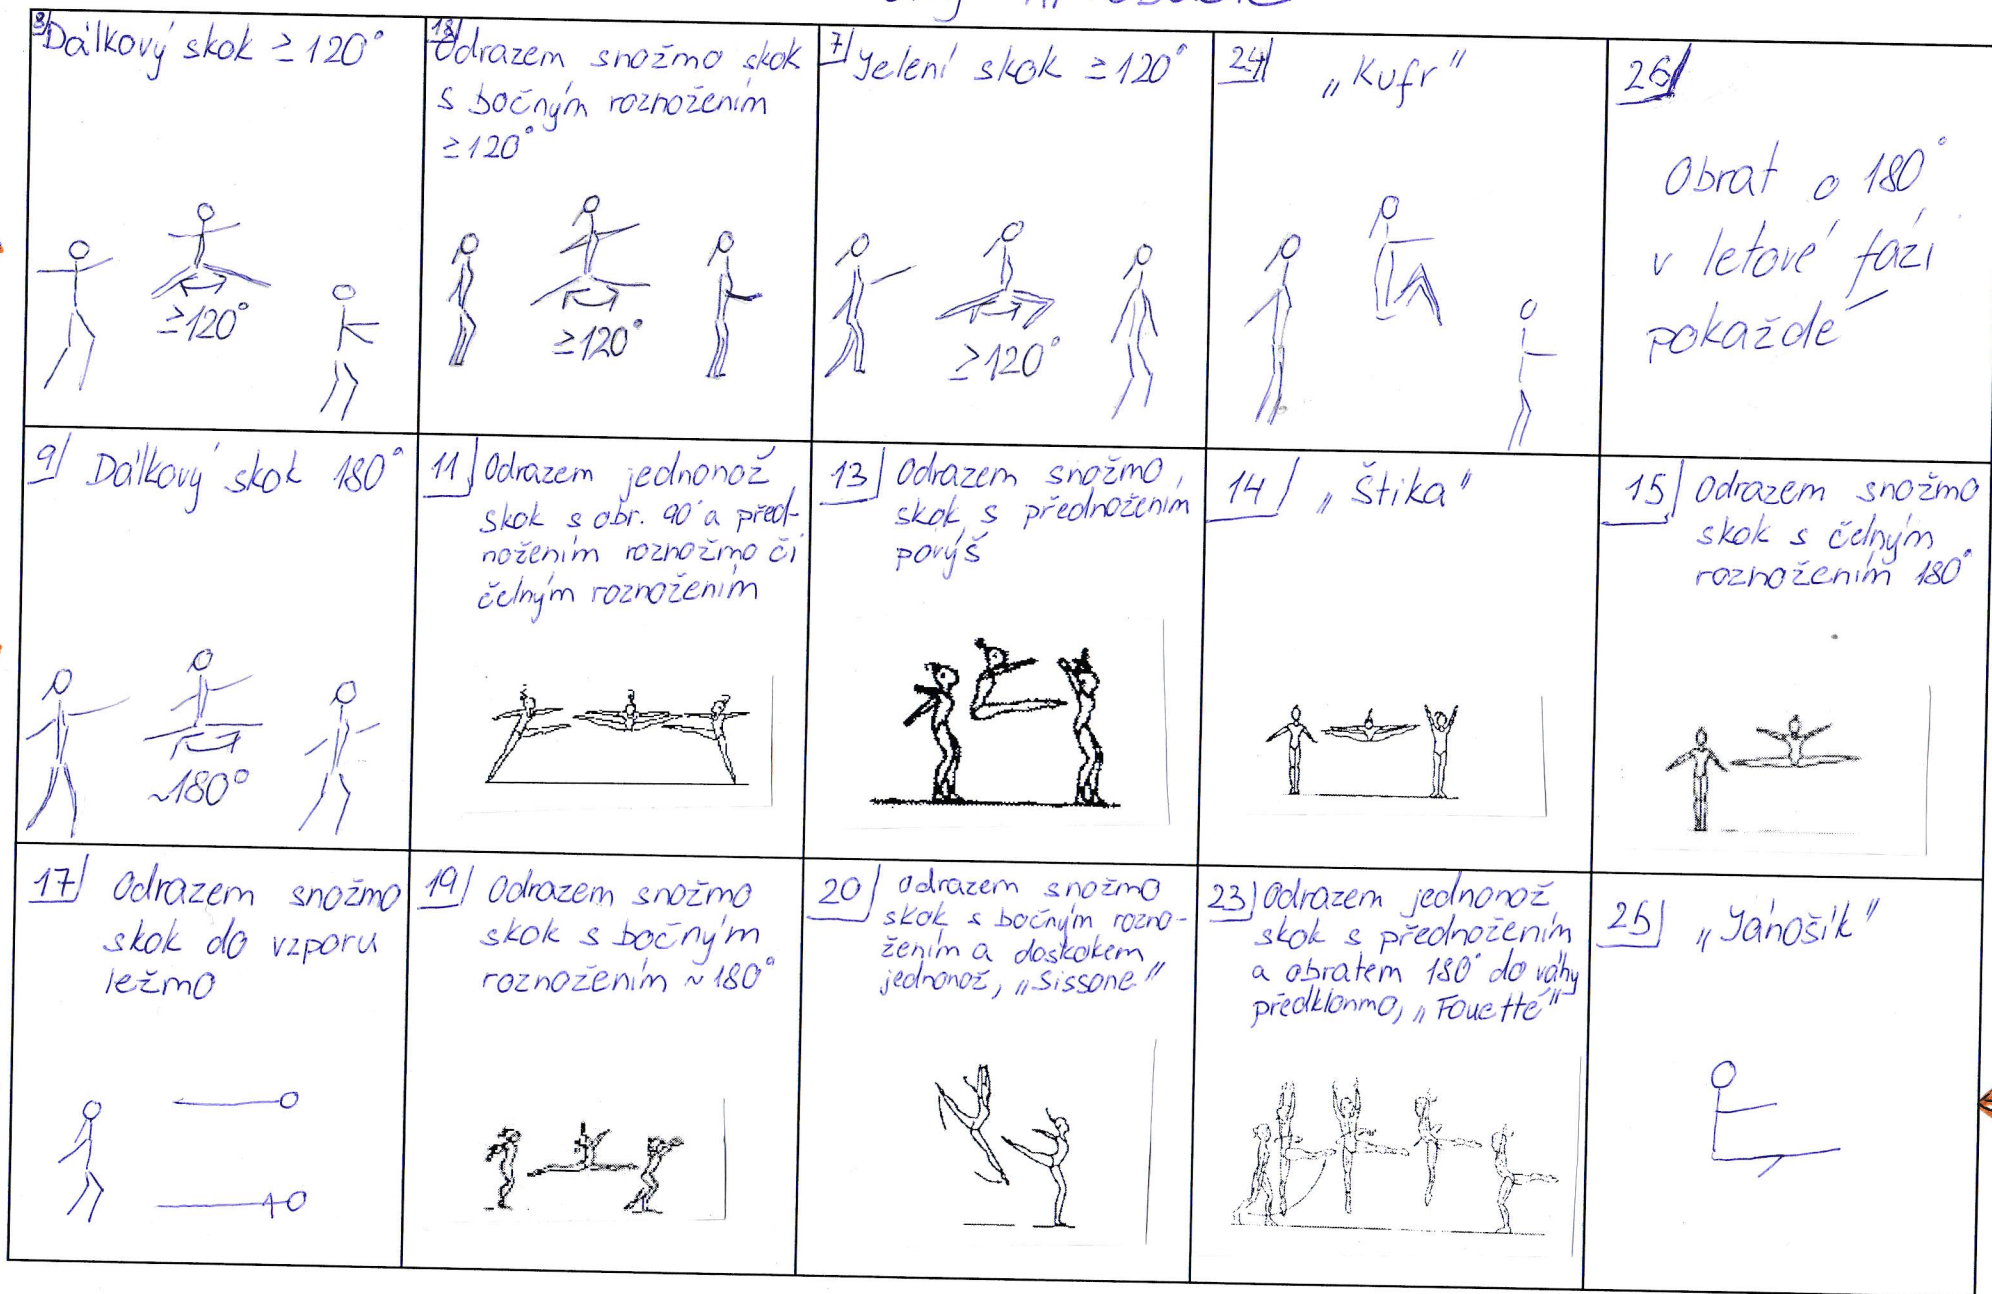 8/ Dálkový skok ≥ 120°
≥120°
18/ Odrazem snožmo skok
s bočným roznožením
≥120°
≥120°
7/ Jelení skok ≥ 120°
≥120°
24/ „Kufr"
26/
Obrat o 180°
v letové fázi
pokaždé
9/ Dálkový skok 180°
~180°
11/ Odrazem jednonož
skok s obr. 90° a před-
nožením roznožmo či
čelným roznožením
13/ Odrazem snožmo
skok s přednožením
povýš
14/ „Štika"
15/ Odrazem snožmo
skok s čelným
roznožením 180°
17/ Odrazem snožmo
skok do vzporu
ležmo
19/ Odrazem snožmo
skok s bočným
roznožením ~ 180°
20/ Odrazem snožmo
skok s bočným rozno-
žením a doskokem
jednonož, „Sissone"
23/ Odrazem jednonož
skok s přednožením
a obratem 180° do váhy
předklonmo, „Fouetté"
25/ „Jánošík"